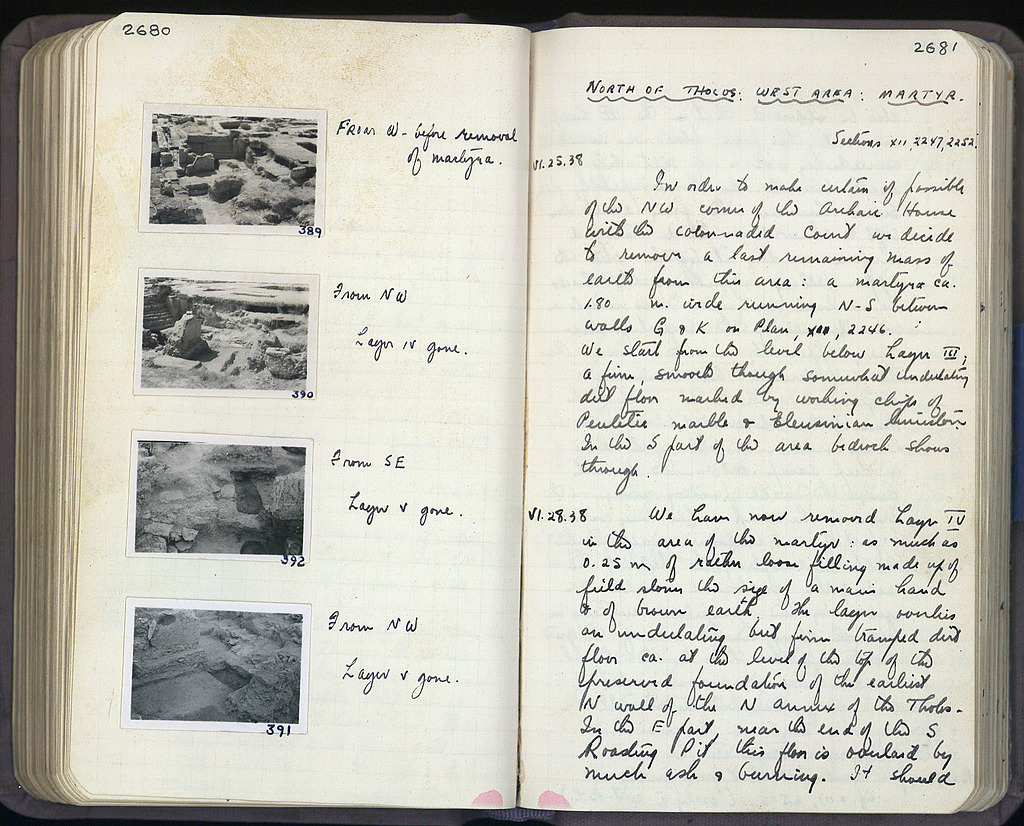 2680
From W - before removal
of martyra.
389
From NW
Layer IV gone.
390
From SE
Layer V gone.
392
From NW
Layer V gone.
391
2681
NORTH OF THOLOS: WEST AREA: MARTYR.
Sections XII 2247, 2252.
VI.25.38
In order to make certain if possible
of the NW corner of the Archaic House
with the colonnaded Court we decide
to remove a last remaining mass of
earth from this area: a martyra ca.
1.80 m. wide running N-S between
walls G & K on Plan, 2246.
We start from the level below Layer III;
a firm, smooth though somewhat undulating
dirt floor marked by working chips of
Pentelic marble & Eleusinian limestone.
In the S part of the area bedrock shows
through.
VI.28.38
We have now removed Layer IV
in the area of the martyr: as much as
0.25 m of rather loose filling made up of
field stones the size of a mans hand
& of brown earth. The layer overlies
an undulating but firm tramped dirt
floor ca. at the level of the top of the
preserved foundation of the earliest
N wall of the N annex of the Tholos.
In the E part, near the end of the S
Roasting Pit this floor is overlaid by
much ash & burning. It should